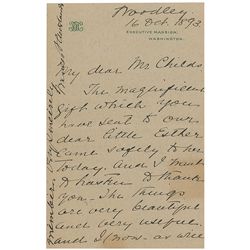 Woodley.
16 Oct. 1893.
EXECUTIVE MANSION,
WASHINGTON.
My dear Mr Childs
The magnificent
gift which you
have sent to our
dear little Esther
came safely to her
today. And I want
to hasten to thank
you. The things
are very beautiful
and very useful.
and I know as will